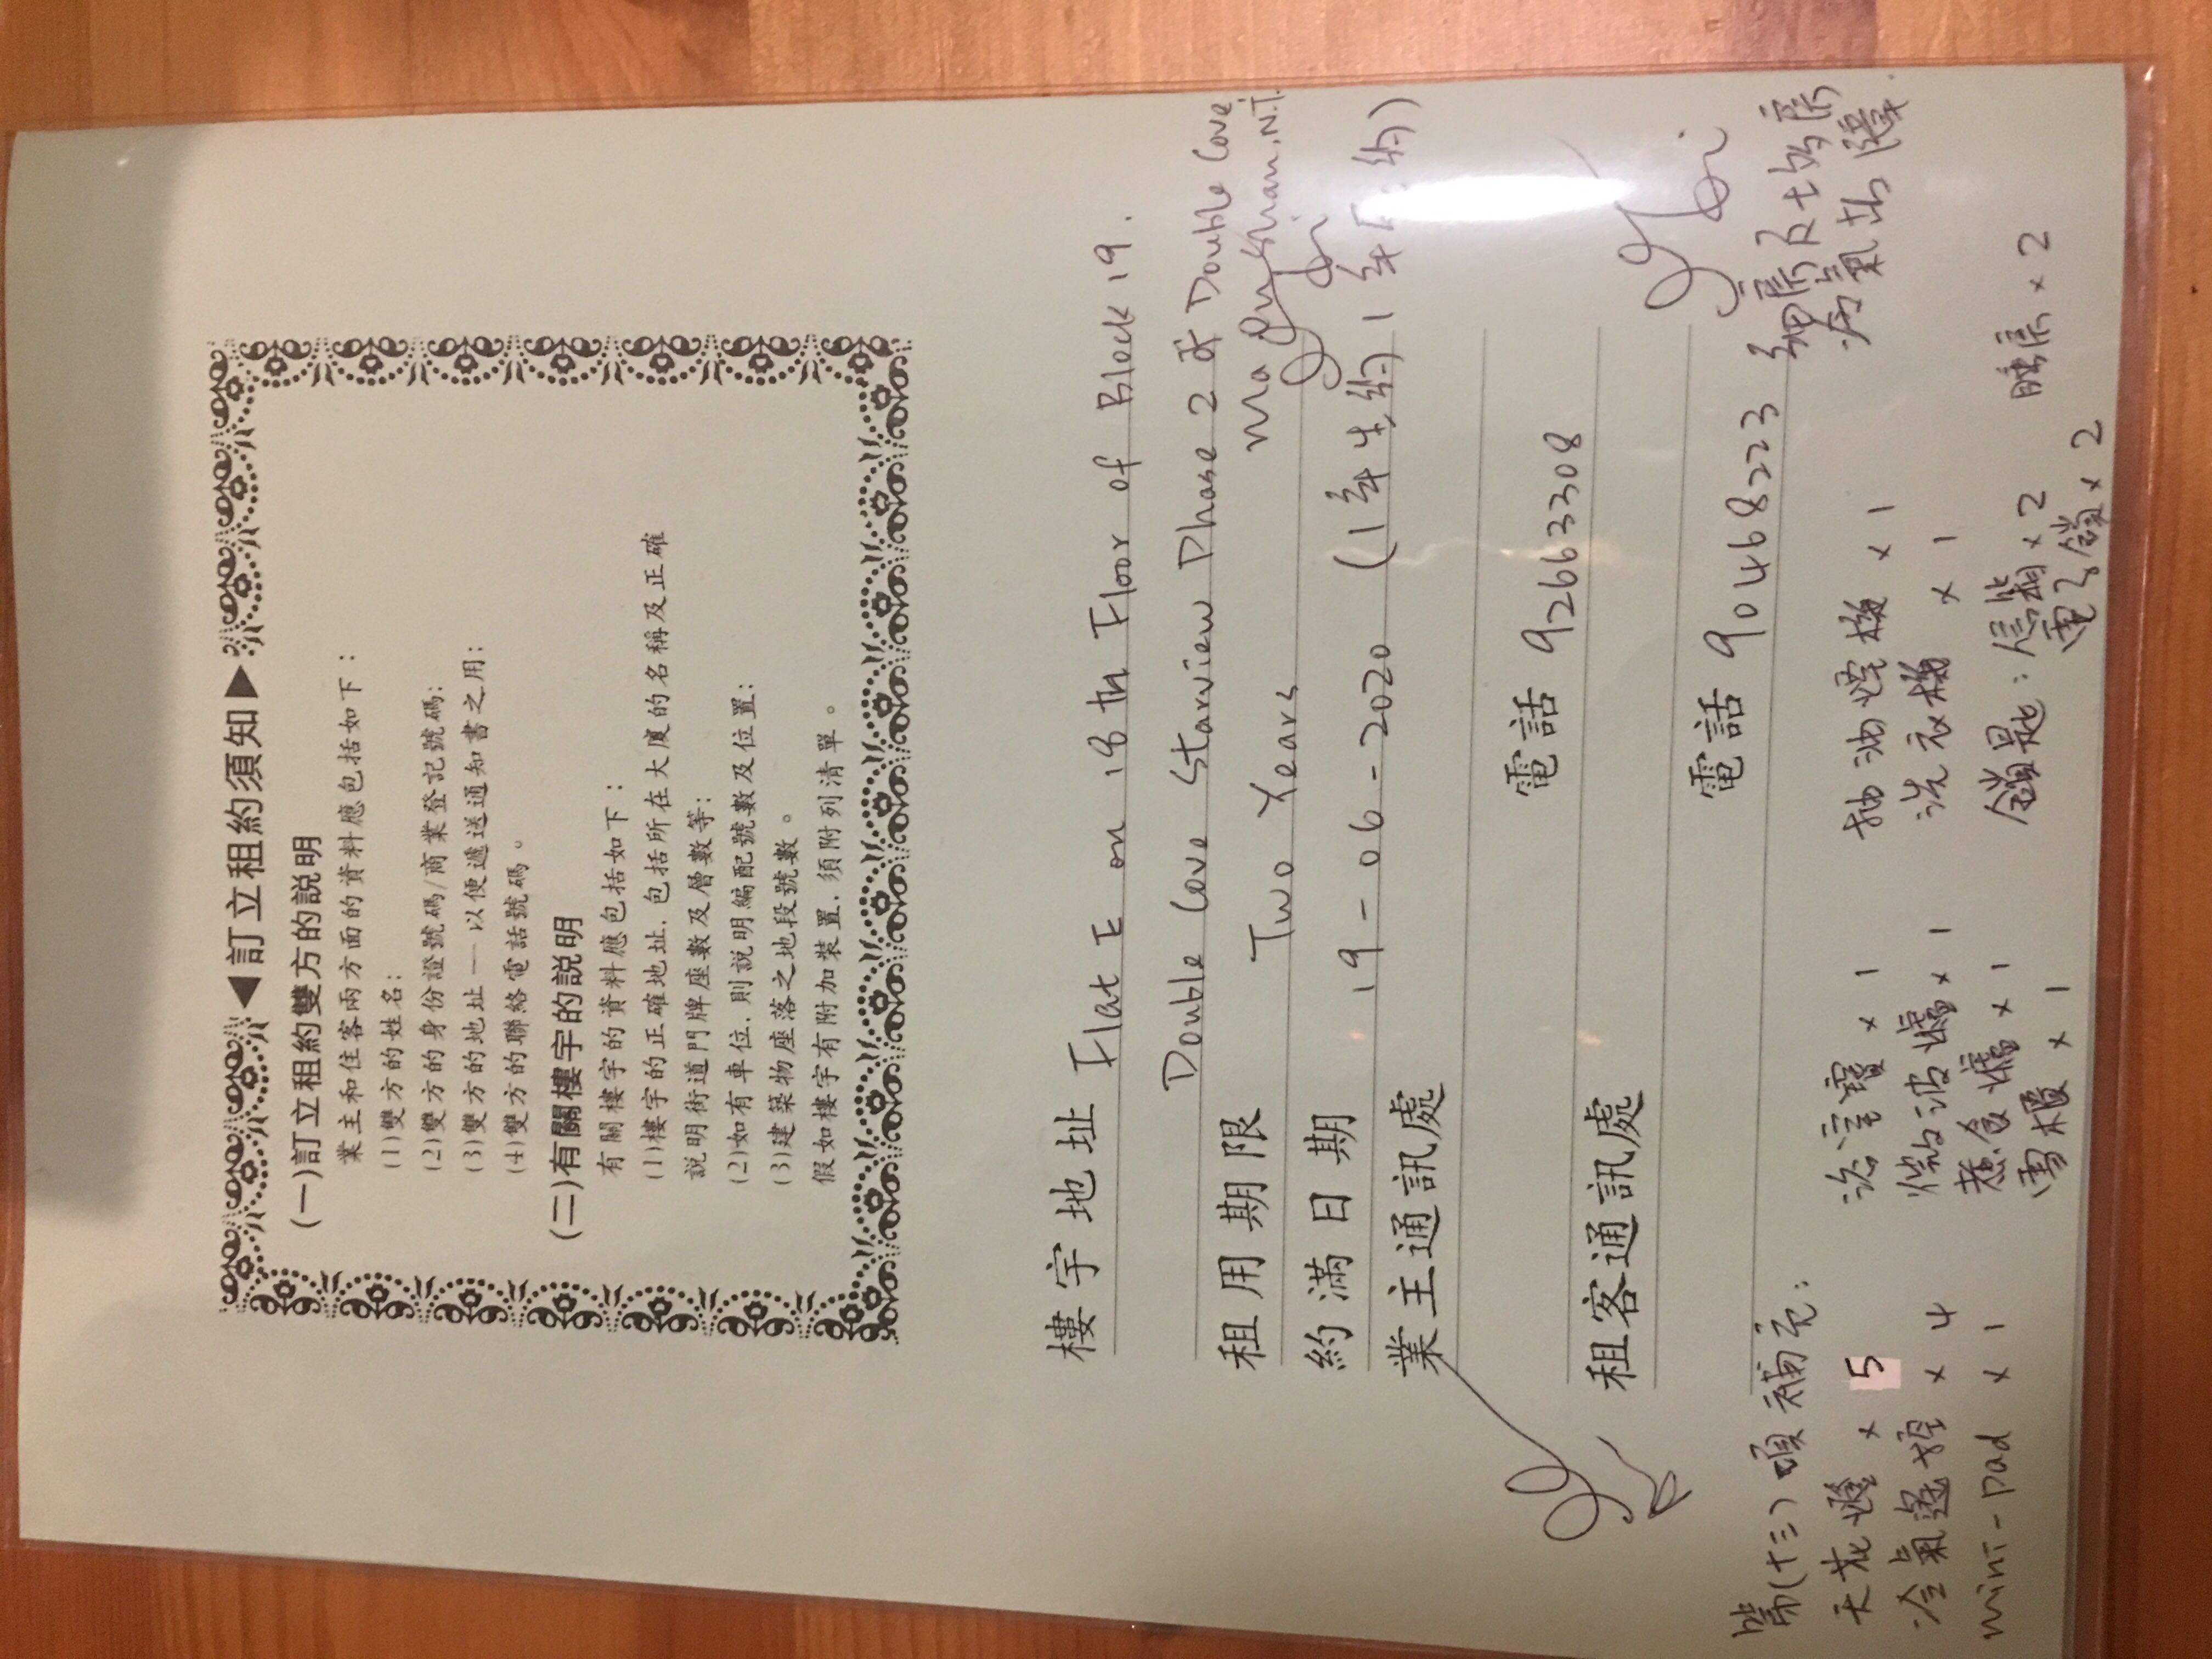 ◀訂立租約須知▶
(一)訂立租約雙方的說明
業主和住客兩方面的資料應包括如下：
(1)雙方的姓名：
(2)雙方的身份證號碼/商業登記號碼:
(3)雙方的地址——以便遞送通知書之用:
(4)雙方的聯絡電話號碼。
(二)有關樓宇的說明
有關樓宇的資料應包括如下：
(1)樓宇的正確地址．包括所在大廈的名稱及正確
說明街道門牌座數及層數等:
(2)如有車位．則說明編配號數及位置:
(3)建築物座落之地段號數。
假如樓宇有附加裝置．須附列清單。
樓宇地址 Flat E on 18th Floor of Block 19.
Double Cove Starview Phase 2 of Double Cove
Ma On Shan, N.T.
租用期限 Two Years
約滿日期 19-06-2020 (1年生約 1年
業主通訊處
電話 92663308
租客通訊處
電話 90468223
第(十三)項補充:
細房及士多房
冷氣故障
天花燈 x 5
浴室寶 x 1
抽油煙機 x 1
冷氣遙控 x 4
微波爐 x 1
洗衣機 x 1
mini-pad x 1
煮食爐 x 1
鎖匙: 信箱 x 2
睡房 x 2
雪櫃 x 1
電子鎖 x 2